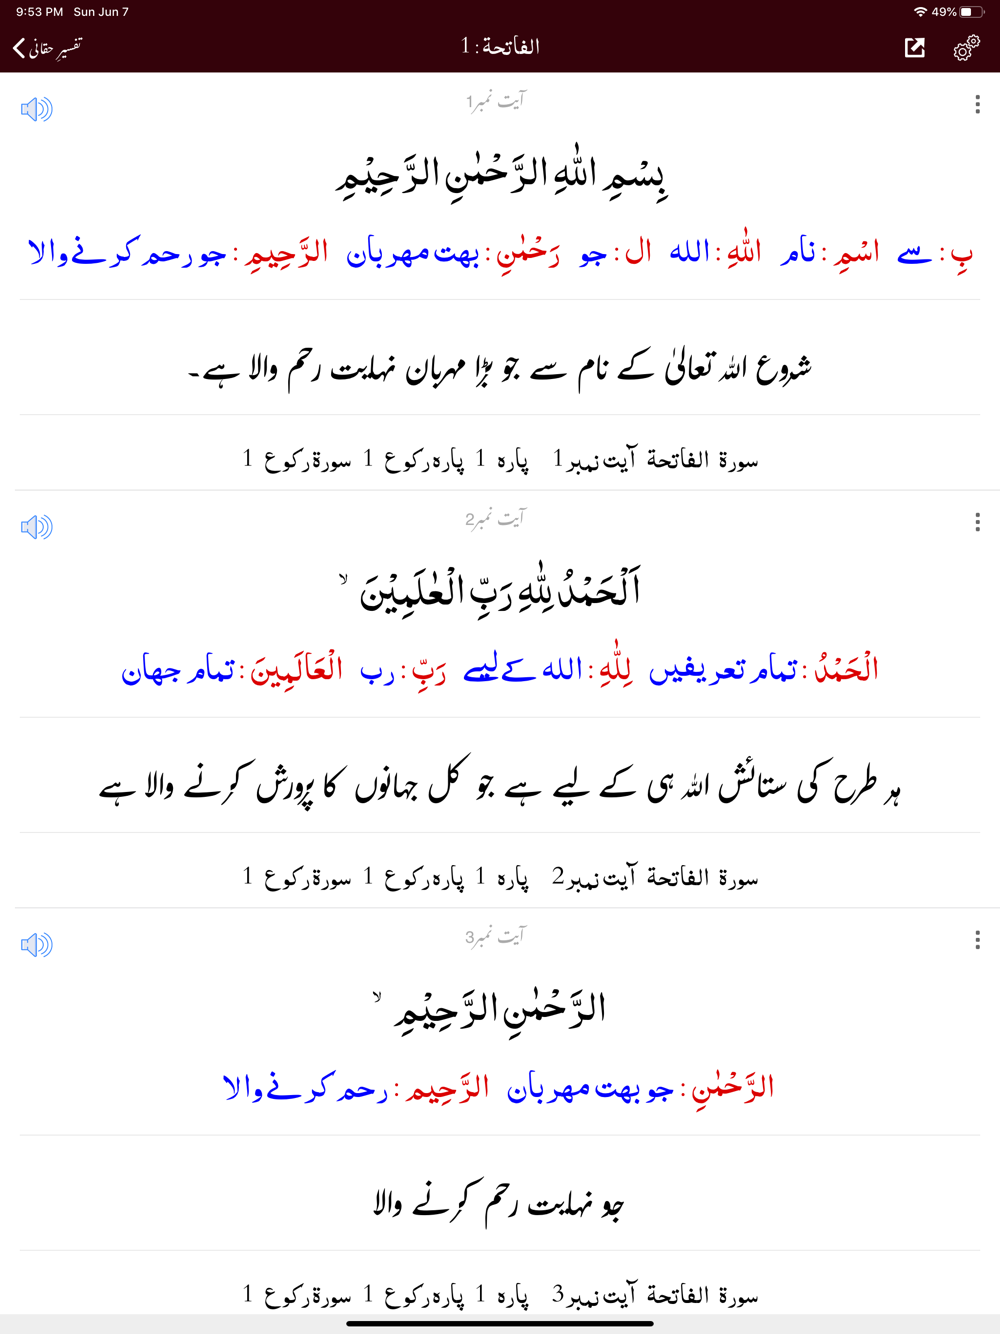 9:53 PM Sun Jun 7 49%
تفسیرِ حقانی الفاتحة : 1
آیت نمبر1
بِسْمِ اللّٰهِ الرَّحْمٰنِ الرَّحِيْمِ
بِ : سے اسْمِ : نام اللّٰهِ : الله ال : جو رَحْمٰنِ : بهت مهربان الرَّحِيمِ : جو رحم کرنے والا
شروع اللہ تعالیٰ کے نام سے جو بڑا مہربان نہایت رحم والا ہے۔
سورة الفاتحة آیت نمبر 1 پاره 1 پاره رکوع 1 سورة رکوع 1
آیت نمبر2
اَلْحَمْدُ لِلّٰهِ رَبِّ الْعٰلَمِيْنَ ۙ
الْحَمْدُ : تمام تعریفیں لِلّٰهِ : الله کے لیے رَبِّ : رب الْعَالَمِينَ : تمام جهان
ہر طرح کی ستائش اللہ ہی کے لیے ہے جو کل جہانوں کا پرورش کرنے والا ہے
سورة الفاتحة آیت نمبر 2 پاره 1 پاره رکوع 1 سورة رکوع 1
آیت نمبر3
الرَّحْمٰنِ الرَّحِيْمِ ۙ
الرَّحْمٰنِ : جو بهت مهربان الرَّحِيم : رحم کرنے والا
جو نہایت رحم کرنے والا
سورة الفاتحة آیت نمبر 3 پاره 1 پاره رکوع 1 سورة رکوع 1